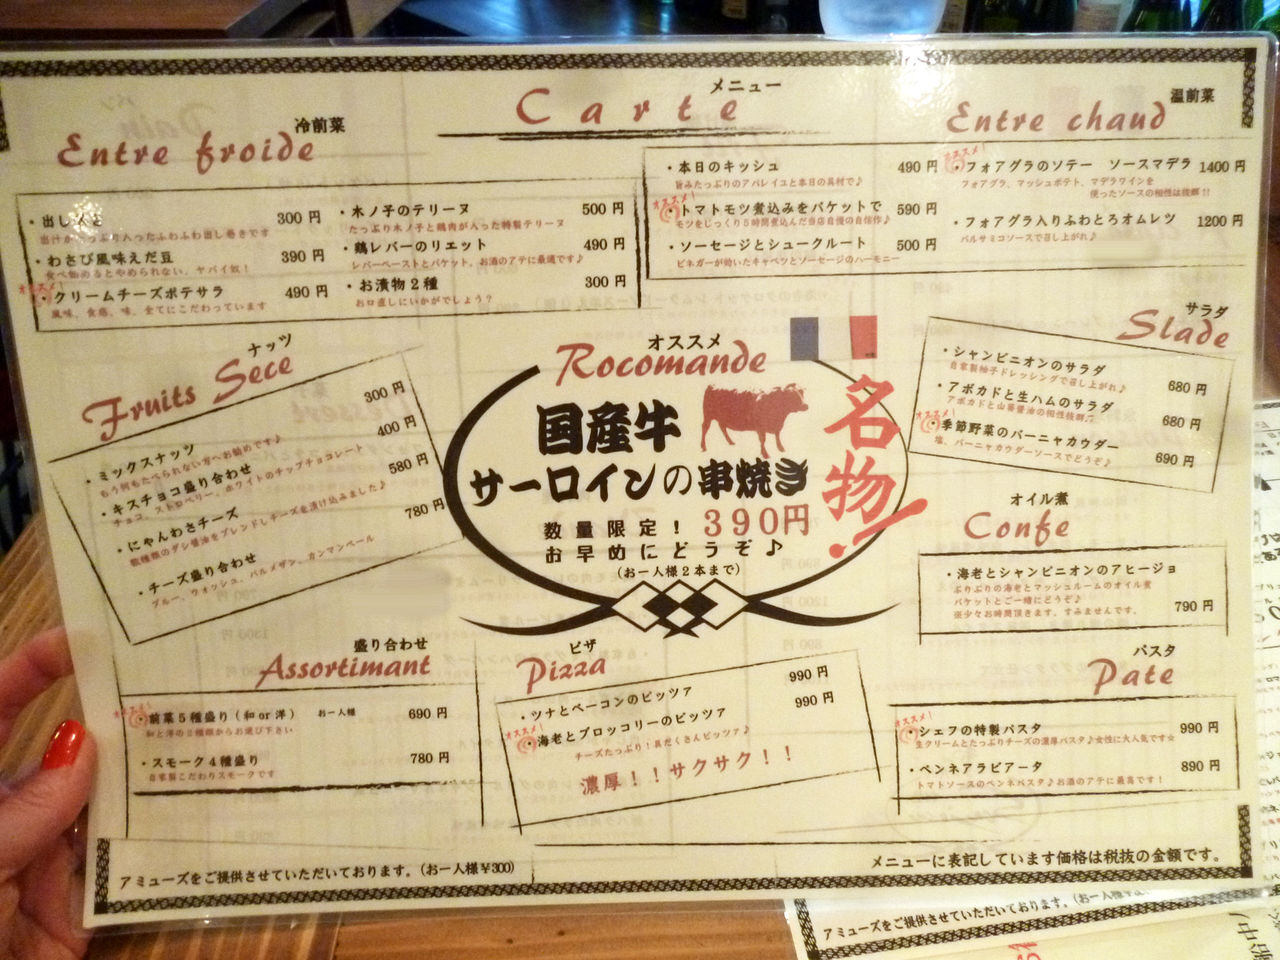 メニュー
Carte
冷前菜
Entre froide
300 円
出汁がたっぷり入ったふわふわ出し巻きです
・わさび風味えだ豆 390 円
食べ始めるとやめられない、ヤバイ奴！
オススメ!
クリームチーズポテサラ 490 円
風味、食感、味、全てにこだわっています
・木ノ子のテリーヌ 500 円
たっぷり木ノ子と鶏肉が入った特製テリーヌ
・鶏レバーのリエット 490 円
レバーペーストとバケット。お酒のアテに最適です♪
・お漬物２種 300 円
お口直しにいかがでしょう？
温前菜
Entre chaud
・本日のキッシュ 490 円
旨みたっぷりのアパレイユと本日の具材で♪
オススメ!
トマトモツ煮込みをバケットで 590 円
モツをじっくり５時間煮込んだ当店自慢の自信作♪
・ソーセージとシュークルート 500 円
ビネガーが効いたキャベツとソーセージのハーモニー
オススメ!
・フォアグラのソテー ソースマデラ 1400 円
フォアグラ、マッシュポテト、マデラワインを
使ったソースの相性は抜群!!
・フォアグラ入りふわとろオムレツ 1200 円
バルサミコソースで召し上がれ♪
ナッツ
Fruits Sece
・ミックスナッツ 300 円
もう何もたべられない方へお勧めです♪
・キスチョコ盛り合わせ 400 円
チョコ、ストロベリー、ホワイトのチップチョコレート
・にゃんわさチーズ 580 円
数種類のダシ醤油をブレンドしチーズを漬け込みました♪
・チーズ盛り合わせ 780 円
ブルー、ウォッシュ、パルメザン、カマンベール
オススメ
Rocomande
国産牛
サーロインの串焼き
名物!
数量限定！ 390円
お早めにどうぞ♪
(お一人様２本まで)
サラダ
Slade
・シャンピニオンのサラダ 680 円
自家製柚子ドレッシングで召し上がれ♪
・アボカドと生ハムのサラダ 680 円
アボカドと山葵醤油の相性抜群♫
オススメ!
季節野菜のバーニャカウダー 690 円
塩、バーニャカウダーソースでどうぞ♪
オイル煮
Confe
・海老とシャンピニオンのアヒージョ
ぷりぷりの海老とマッシュルームのオイル煮
バケットとご一緒にどうぞ♪
※少々お時間頂きます。すみませんです。 790 円
盛り合わせ
Assortimant
オススメ!
前菜５種盛り（和 or 洋） お一人様 690 円
和と洋の２種類からお選び下さい
・スモーク４種盛り 780 円
自家製こだわりスモークです
ピザ
Pizza
・ツナとベーコンのピッツァ 990 円
オススメ!
海老とブロッコリーのピッツァ 990 円
チーズたっぷり！具だくさんピッツァ♪
濃厚！！サクサク！！
パスタ
Pate
オススメ!
シェフの特製パスタ 990 円
生クリームとたっぷりチーズの濃厚パスタ♪女性に大人気です☆
・ペンネアラビアータ 890 円
トマトソースのペンネパスタ♪お酒のアテに最高です！
アミューズをご提供させていただいております。(お一人様￥300)
メニューに表記しています価格は税抜の金額です。
アミューズをご提供させていただいております。